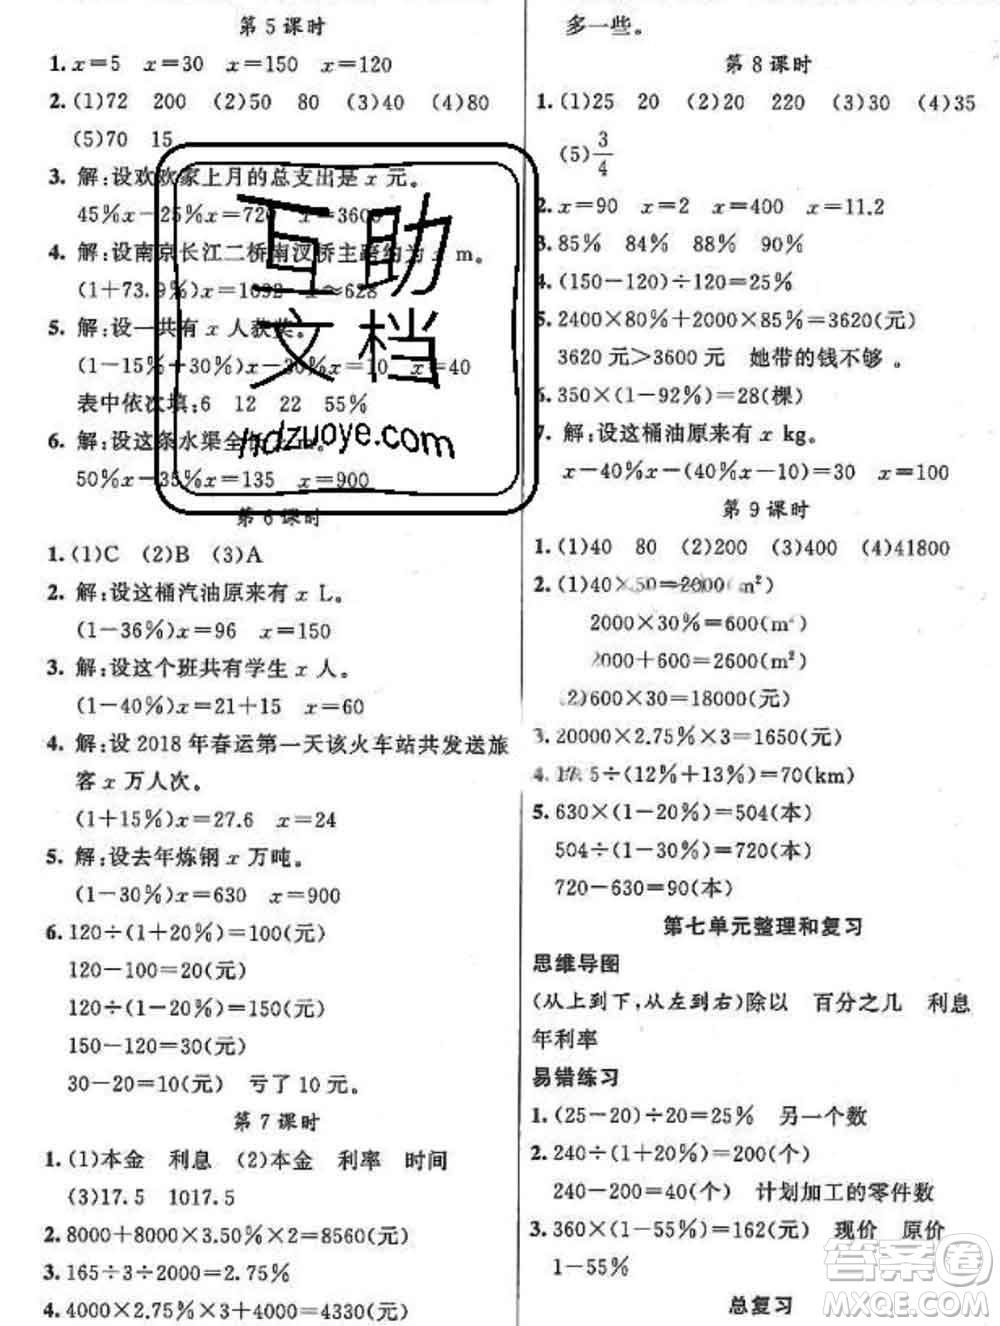 第5课时
1. x=5 x=30 x=150 x=120
2. (1)72 200 (2)50 80 (3)40 (4)80
(5)70 15
3. 解:设欢欢家上月的总支出是 x 元。
45%x-25%x=720 x=3600
4. 解:设南京长江二桥南汊桥主跨约为 x m。
(1+73.9%)x=1092 x≈628
5. 解:设一共有 x 人获奖。
(1-15%+30%)x-x=10 x=40
表中依次填:6 12 22 55%
6. 解:设这条水渠全长 x m。
50%x-35%x=135 x=900
第6课时
1. (1)C (2)B (3)A
2. 解:设这桶汽油原来有 x L。
(1-36%)x=96 x=150
3. 解:设这个班共有学生 x 人。
(1-40%)x=21+15 x=60
4. 解:设 2018 年春运第一天该火车站共发送旅
客 x 万人次。
(1+15%)x=27.6 x=24
5. 解:设去年炼钢 x 万吨。
(1-30%)x=630 x=900
6. 120÷(1+20%)=100(元)
120-100=20(元)
120÷(1-20%)=150(元)
150-120=30(元)
30-20=10(元) 亏了 10 元。
第7课时
1. (1)本金 利息 (2)本金 利率 时间
(3)17.5 1017.5
2. 8000+8000×3.50%×2=8560(元)
3. 165÷3÷2000=2.75%
4. 4000×2.75%×3+4000=4330(元)
多一些。
第8课时
1. (1)25 20 (2)20 220 (3)30 (4)35
(5)3/4
2. x=90 x=2 x=400 x=11.2
3. 85% 84% 88% 90%
4. (150-120)÷120=25%
5. 2400×80%+2000×85%=3620(元)
3620 元>3600 元 她带的钱不够。
6. 350×(1-92%)=28(棵)
7. 解:设这桶油原来有 x kg。
x-40%x-(40%x-10)=30 x=100
第9课时
1. (1)40 80 (2)200 (3)400 (4)41800
2. (1)40×50=2000(m²)
2000×30%=600(m²)
2000+600=2600(m²)
(2)600×30=18000(元)
3. 20000×2.75%×3=1650(元)
4. 17.5÷(12%+13%)=70(km)
5. 630×(1-20%)=504(本)
504÷(1-30%)=720(本)
720-630=90(本)
第七单元整理和复习
思维导图
(从上到下,从左到右)除以 百分之几 利息
年利率
易错练习
1. (25-20)÷20=25% 另一个数
2. 240÷(1+20%)=200(个)
240-200=40(个) 计划加工的零件数
3. 360×(1-55%)=162(元) 现价 原价
1-55%
总复习
互助
文档
hdzuoye.com
答案圈
MXQE.COM